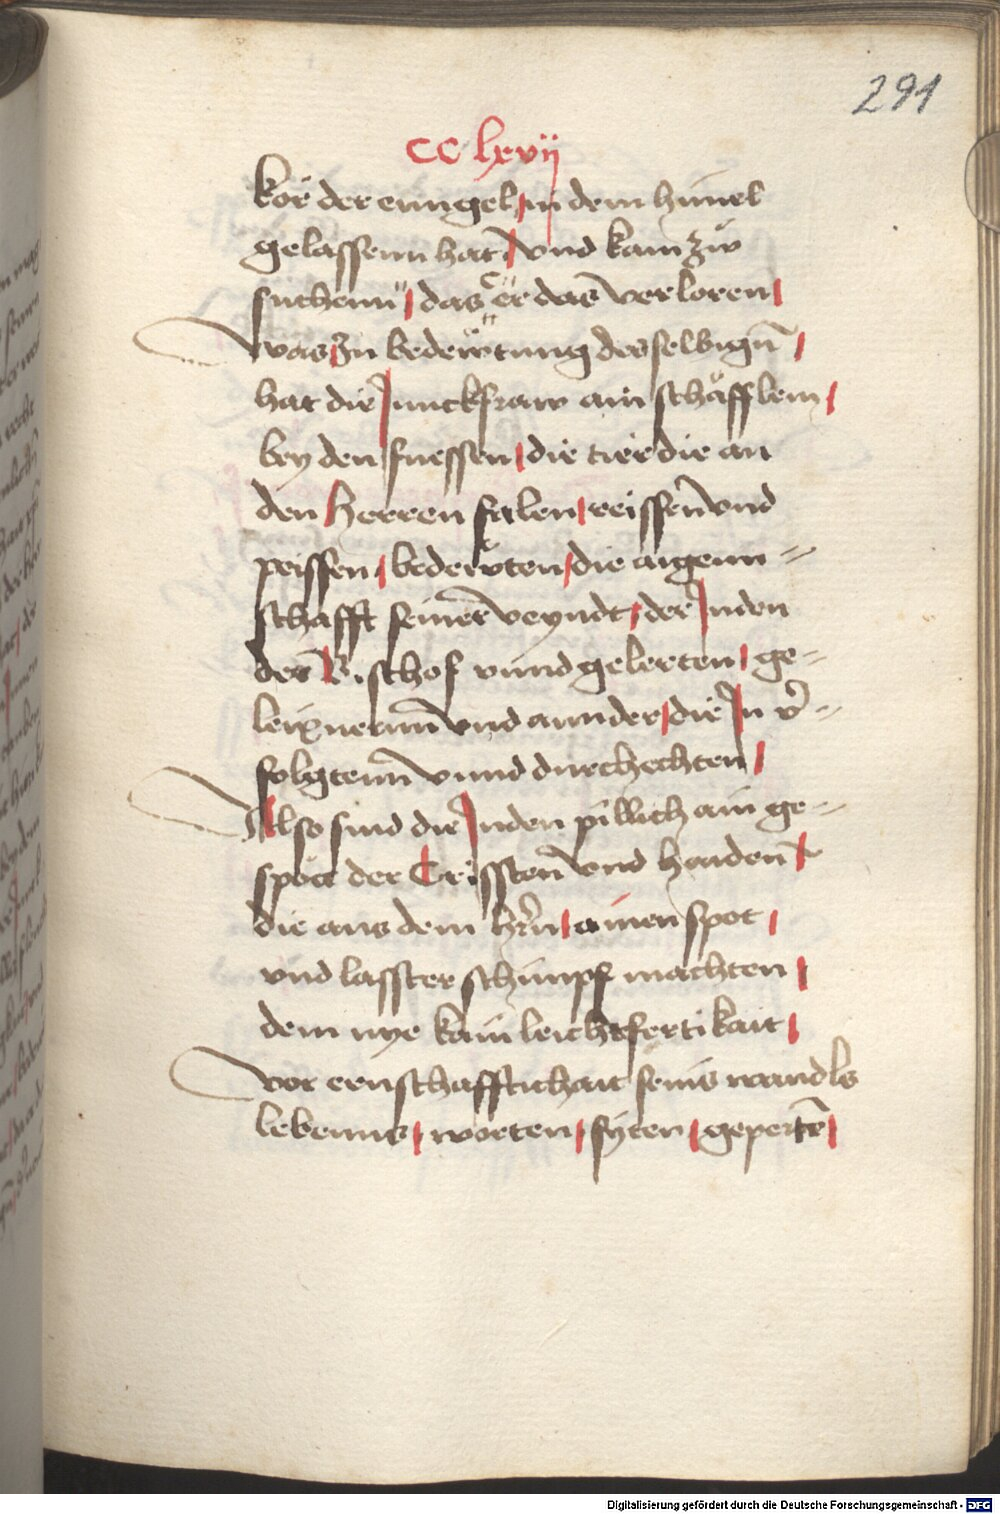 291
CC lxvij
kör der ennngel in dem himel
gelassenn hat vnd kam zw
suchenn das er das verloren
was Zu bedewtung desselbigñ
hat die Junckfraw ain schäfflem
bey den fuessen die tier die an
den Herren falen reissen vnd
peissen bedewten die aigenn=
schafft seiner veyndt der Juden
der Bischof vnnd gelerten ge=
leixnerinn vnd annder die Jn v̄=
folgtenn vnnd durchechten
Also sind die Juden pillich ain ge=
spöt der Crissten vnd haiden
die aus dem hr̄n ainen spot
vnd lasster schimpf machten
dem nye kain leichtfertikait
vor ernschafftichait seins wandls
lebenns worten syten geperte
Digitalisierung gefördert durch die Deutsche Forschungsgemeinschaft - DFG